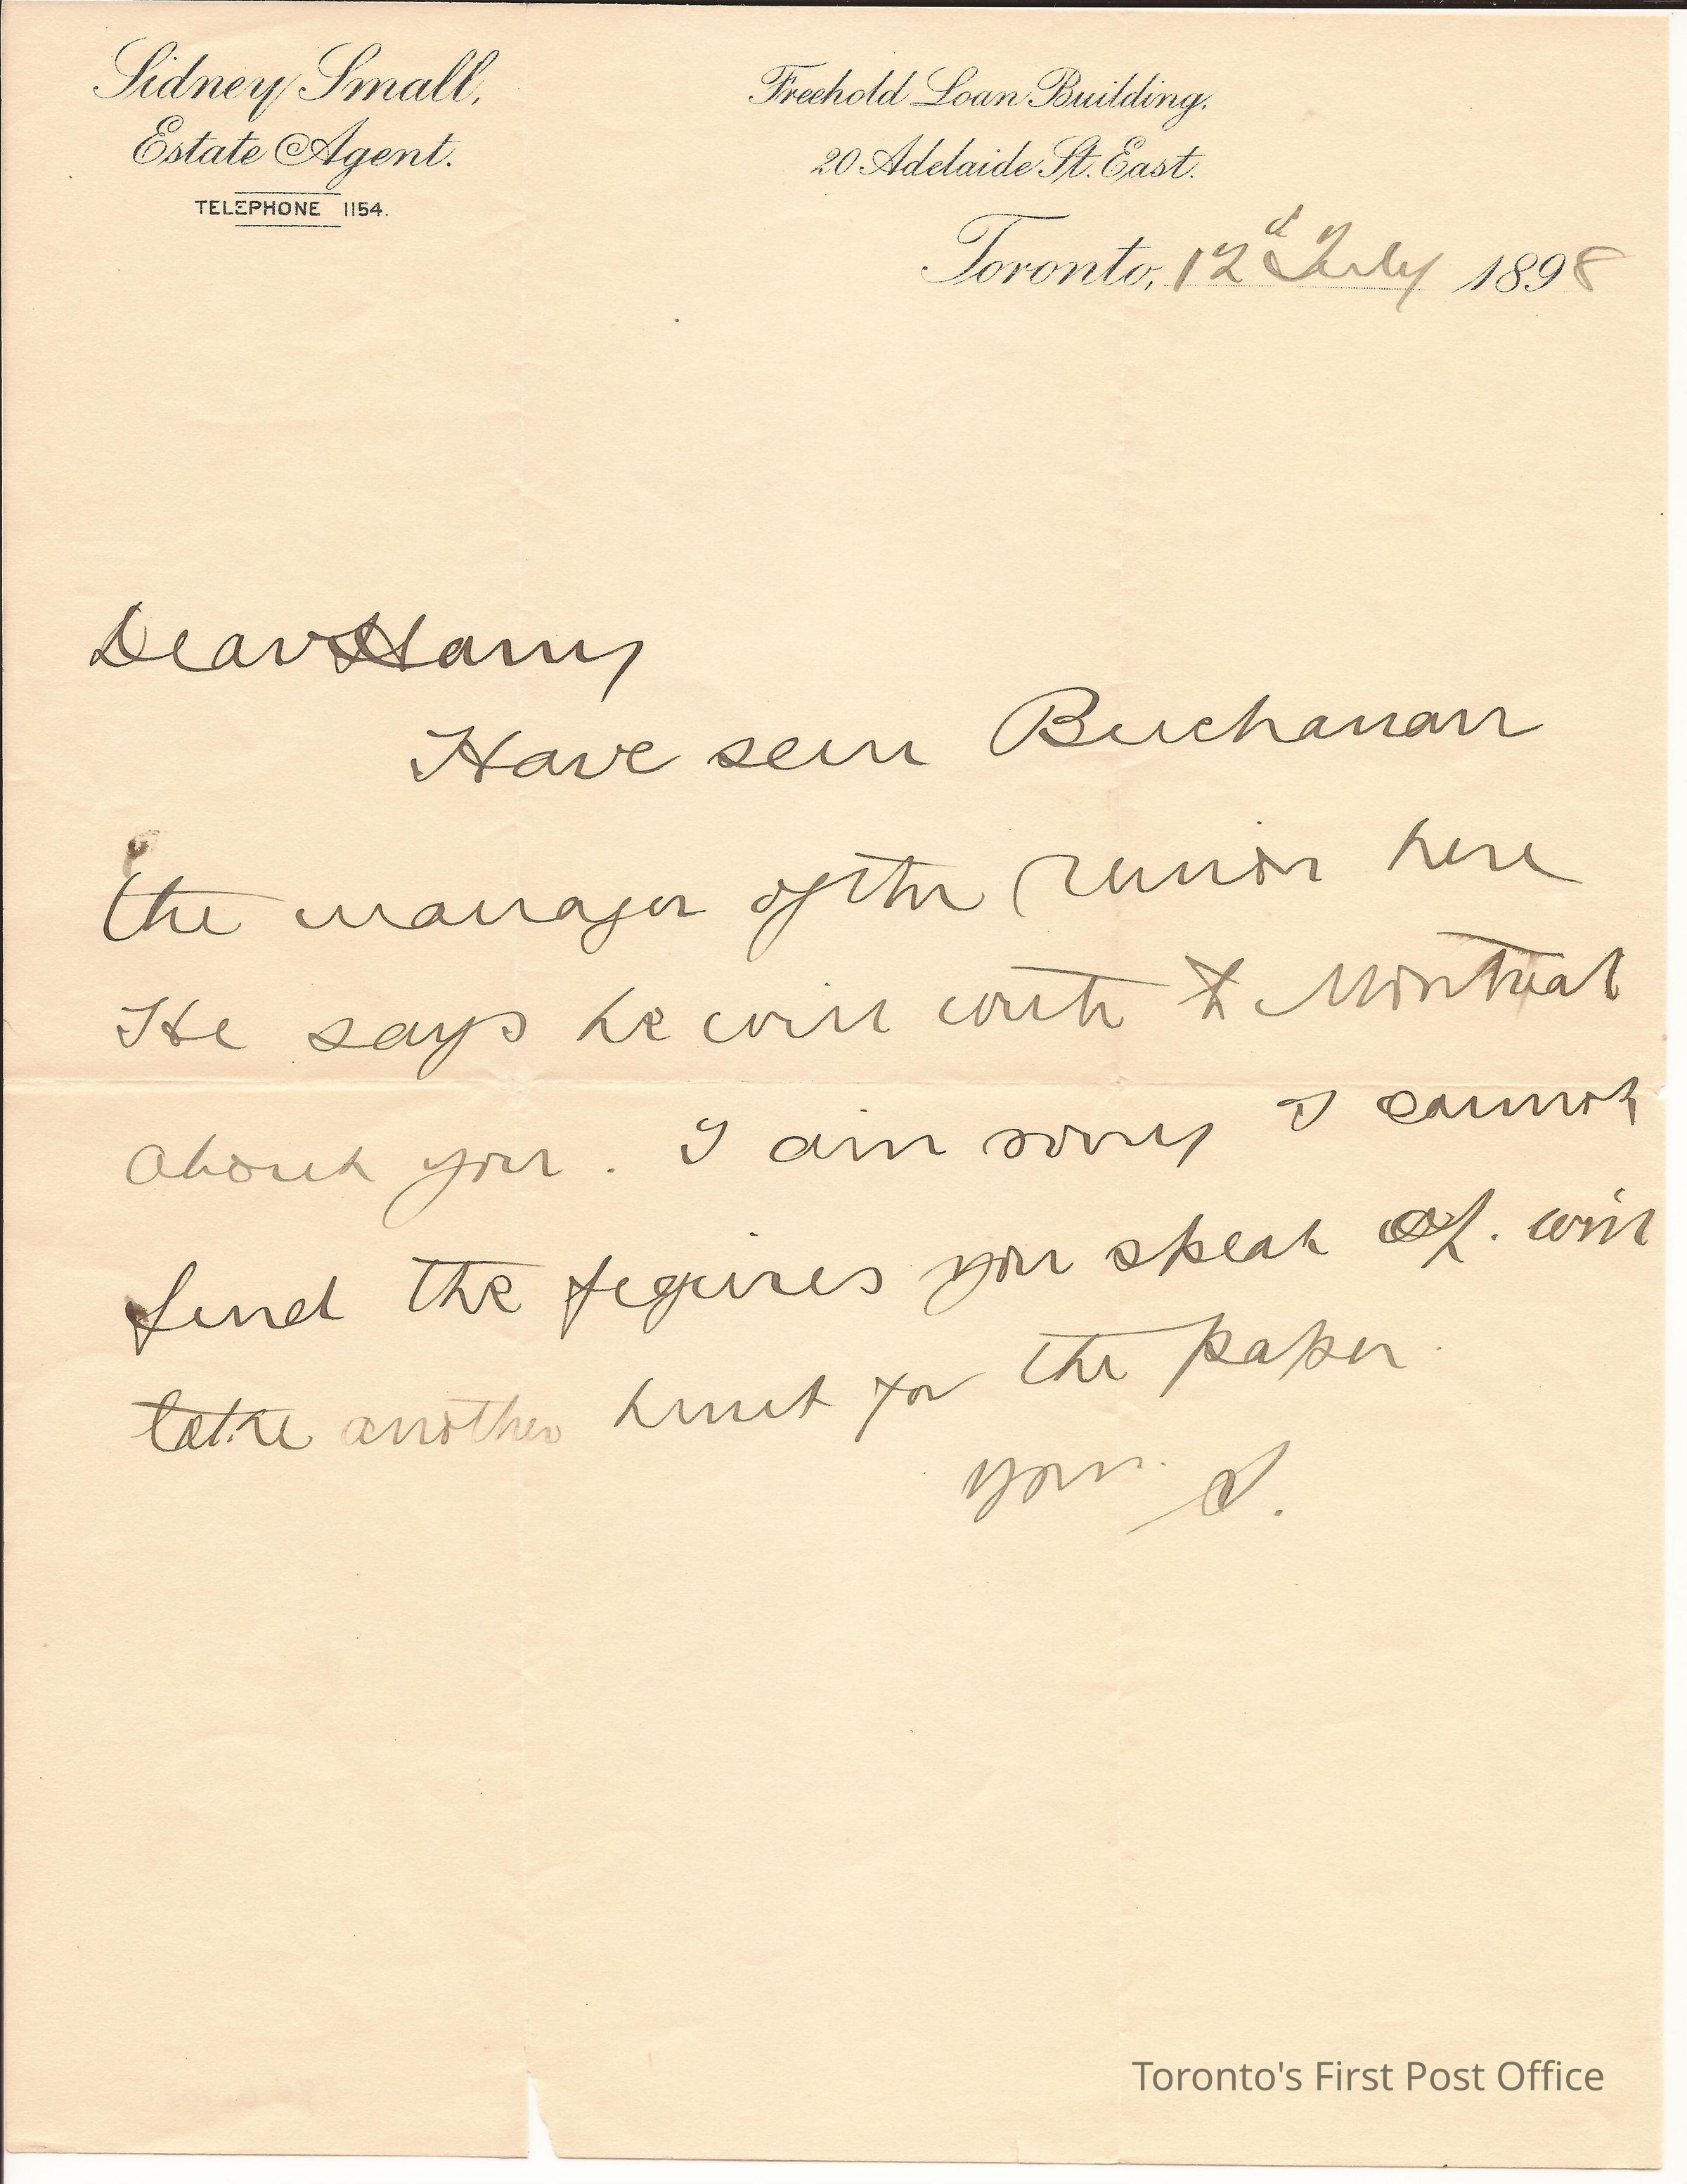 Sidney Small,
Estate Agent.
TELEPHONE 1154.
Freehold Loan Building.
20 Adelaide St. East.
Toronto, 12d July 1898
Dear Harry
Have seen Buchanan
the manager of the here
He says he will write to Montreal
about you. I am sorry I cannot
find the figures you speak of. will
take another hunt for the paper.
Yours. S.
Toronto's First Post Office